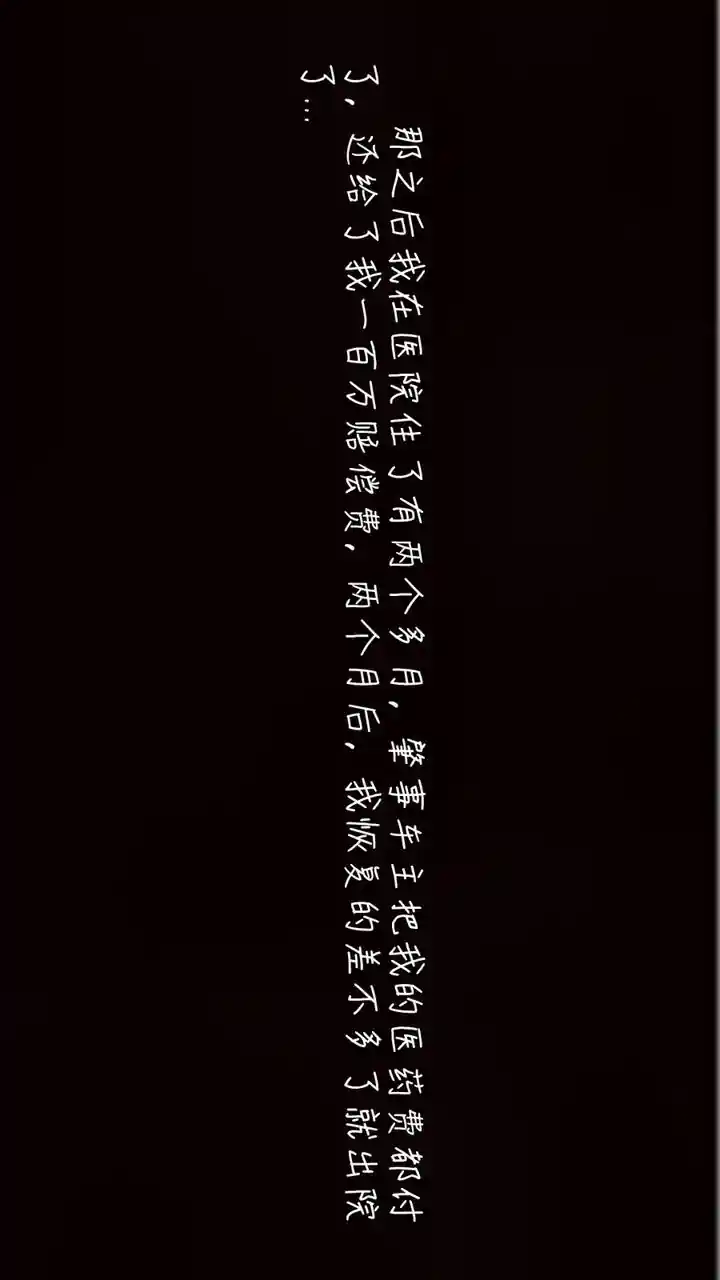 那之后我在医院住了有两个多月，肇事车主把我的医药费都付
了，还给了我一百万赔偿费，两个月后，我恢复的差不多了就出院
了…